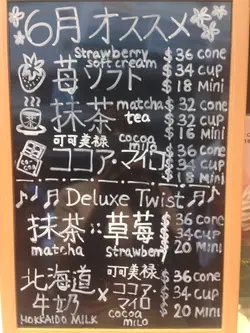 6月オススメ
Strawberry
soft cream
苺ソフト
$36 cone
$34 cup
$18 Mini
抹茶 matcha
tea
$32 cone
$32 cup
$16 Mini
可可美禄 cocoa
milo
ココア・マイロ
$36 cone
$34 cup
$18 Mini
Deluxe Twist
抹茶::草莓
matcha strawberry
$36 cone
$34 cup
$20 Mini
北海道
牛奶
HOKKAIDO MILK
×
可可美禄
ココア・
マイロ
cocoa
milo
$36 cone
$34 cup
$20 Mini